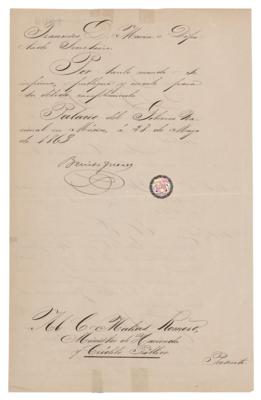 Francisco D. Macin — Dipu
tado Secretario.
Por tanto mando se
imprima, publique y circule para
su debido cumplimiento.
Palacio del Gobierno Na
cional en México, á 28 de Mayo
de 1868
Benito Juarez
Al C. Matias Romero,
Ministro de Hacienda
y Crédito Público.
Presente